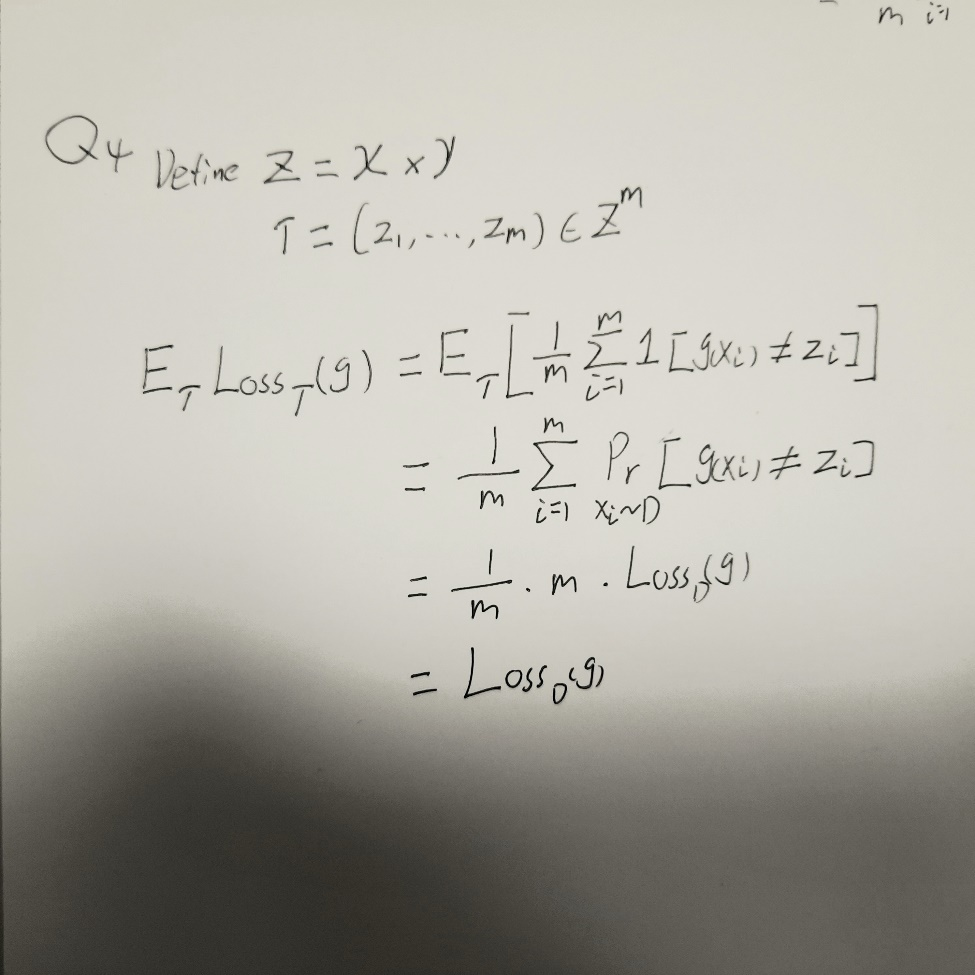 m i=1
Q4 Define Z = X × Y
T = (z₁, ..., zₘ) ∈ Zᵐ
E_T Loss_T(g) = E_T [ 1/m ∑_{i=1}^{m} 1[g(xᵢ) ≠ zᵢ] ]
= 1/m ∑_{i=1}^{m} Pr_{xᵢ~D} [g(xᵢ) ≠ zᵢ]
= 1/m · m · Loss_D(g)
= Loss_D(g)